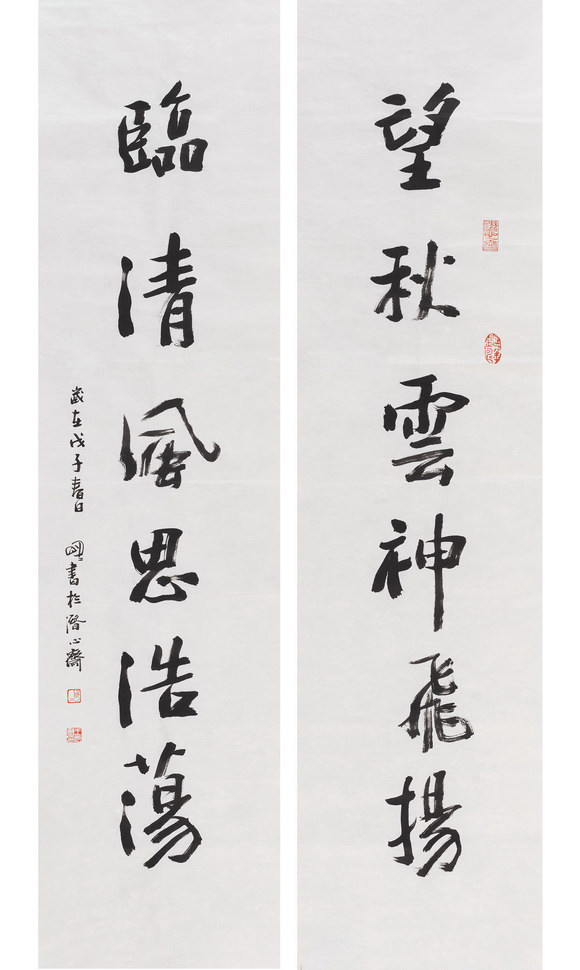 望秋雲神飛揚
臨清風思浩蕩
歲在戊子春日
書於潛心齋